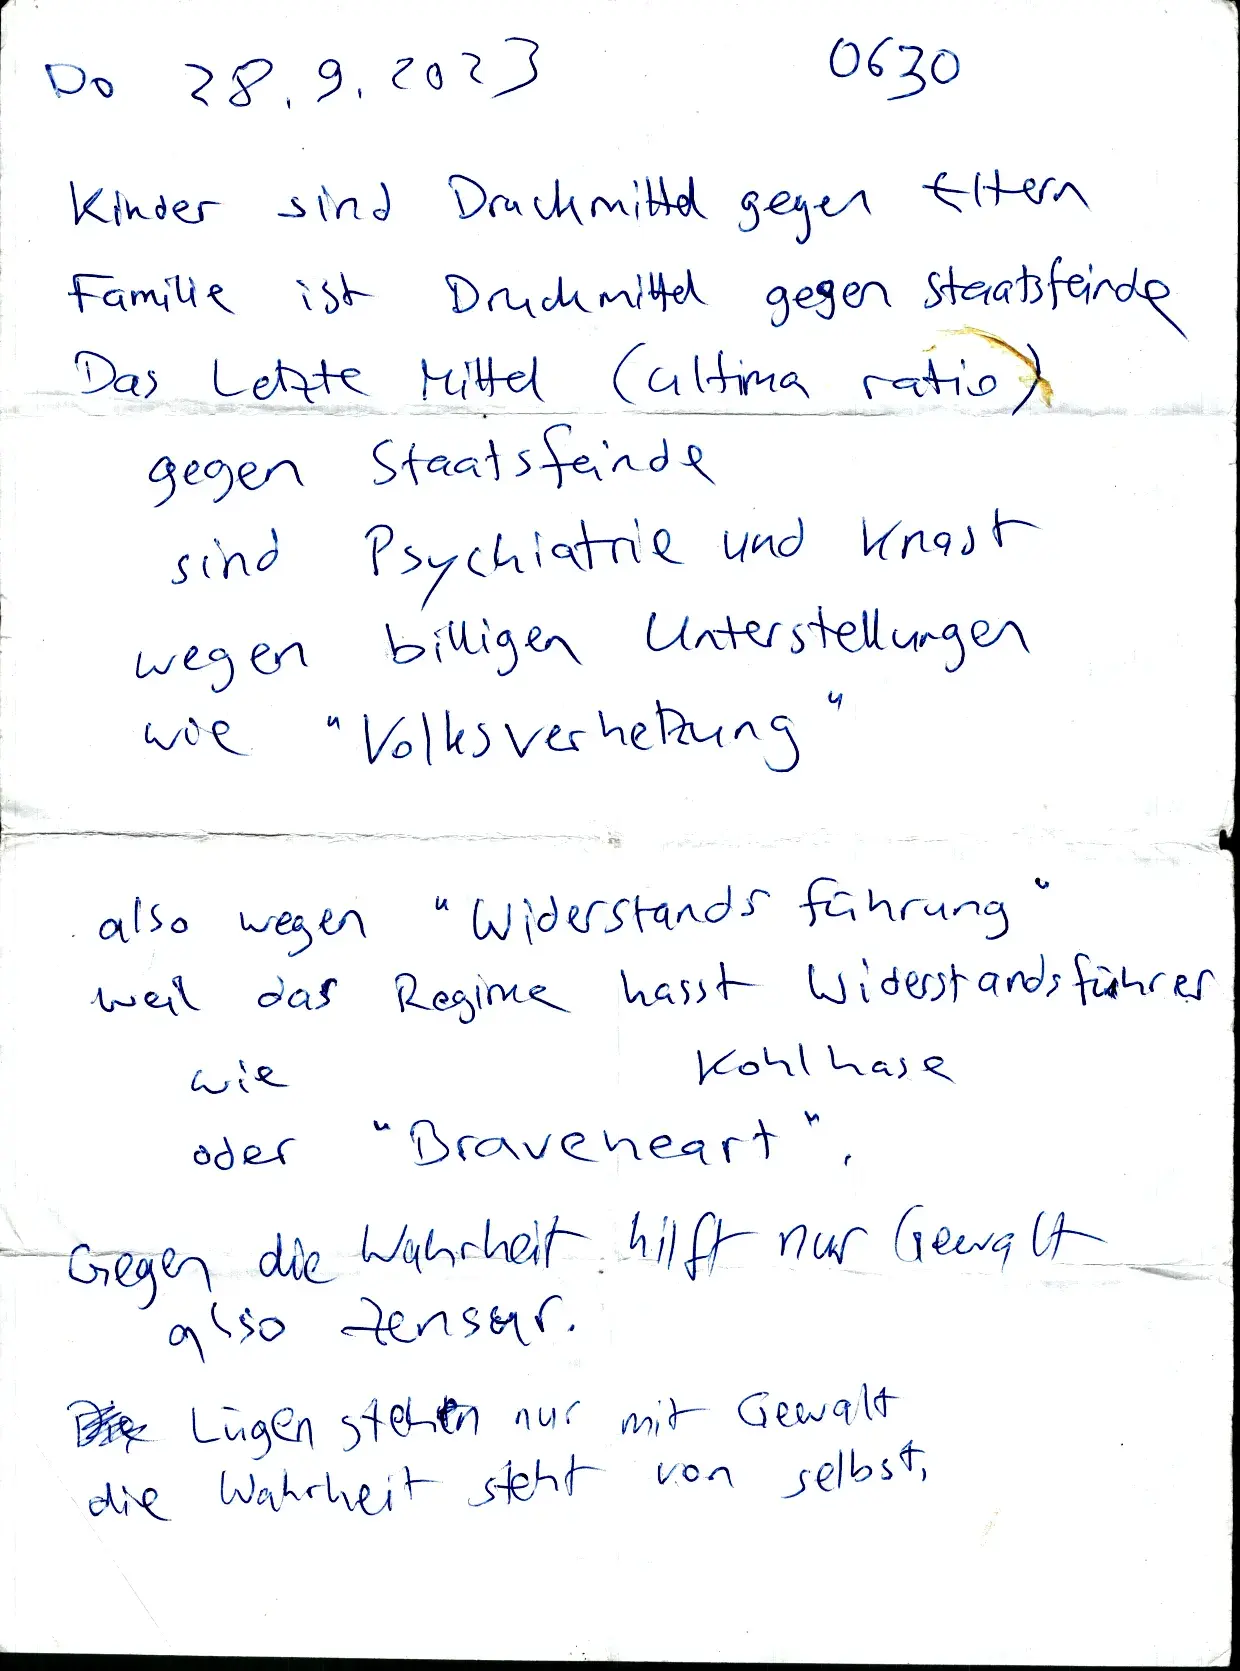 Do 28.9.2023 0630
Kinder sind Druckmittel gegen Eltern
Familie ist Druckmittel gegen Staatsfeinde
Das Letzte Mittel (ultima ratio)
gegen Staatsfeinde
sind Psychiatrie und Knast
wegen billigen Unterstellungen
wie "Volksverhetzung"
also wegen "Widerstandsführung"
weil das Regime hasst Widerstandsführer
wie Kohlhase
oder "Braveheart".
Gegen die Wahrheit hilft nur Gewalt
also Zensur.
Lügen stehen nur mit Gewalt
die Wahrheit steht von selbst.